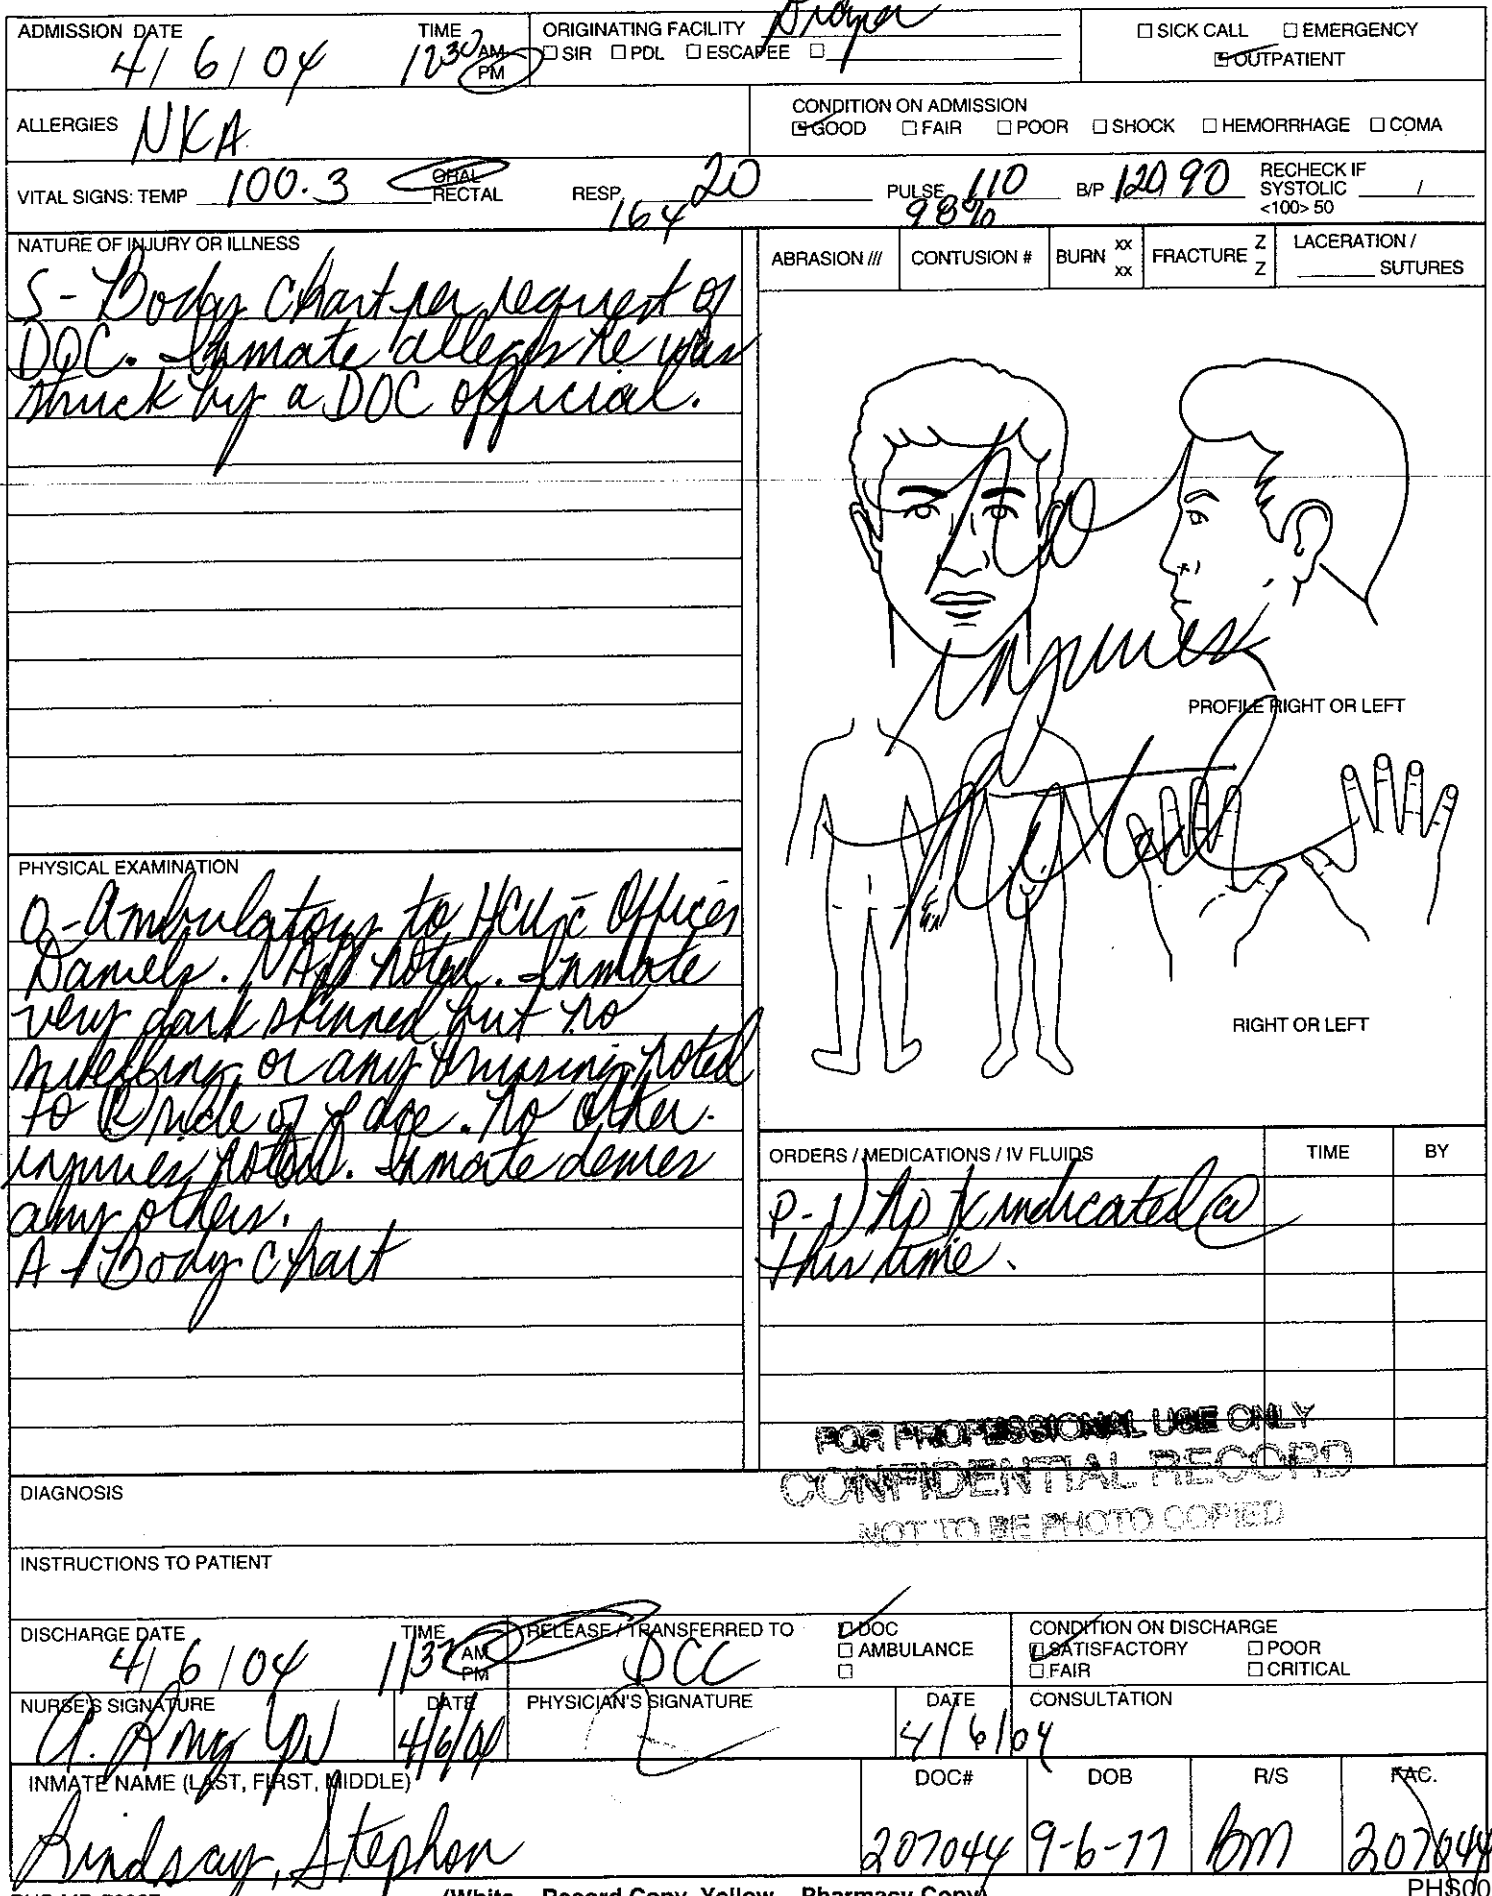 ADMISSION DATE
4/6/04
TIME
1230 AM
PM
ORIGINATING FACILITY Draper
☐ SIR ☐ PDL ☐ ESCAPEE ☐
☐ SICK CALL ☐ EMERGENCY
☑ OUTPATIENT
ALLERGIES NKA
CONDITION ON ADMISSION
☑ GOOD ☐ FAIR ☐ POOR ☐ SHOCK ☐ HEMORRHAGE ☐ COMA
VITAL SIGNS: TEMP 100.3 ORAL
RECTAL
RESP. 20
164
PULSE 110
98%
B/P 120/90
RECHECK IF
SYSTOLIC /
<100> 50
NATURE OF INJURY OR ILLNESS
S - Body Chart per request of
DOC. Inmate alleges he was
struck by a DOC official.
ABRASION /// CONTUSION # BURN xx
xx
FRACTURE Z
Z
LACERATION /
SUTURES
No
injuries
noted
PROFILE RIGHT OR LEFT
RIGHT OR LEFT
PHYSICAL EXAMINATION
O - Ambulatory to HCU c̄ Officer
Daniels. NAD noted. Inmate
very dark skinned but no
swelling or any bruising noted
to Ⓡ side of face. No other
injuries noted. Inmate denies
any others.
A - Body Chart
ORDERS / MEDICATIONS / IV FLUIDS TIME BY
P - 1) No tx indicated @
this time.
FOR PROFESSIONAL USE ONLY
CONFIDENTIAL RECORD
NOT TO BE PHOTO COPIED
DIAGNOSIS
INSTRUCTIONS TO PATIENT
DISCHARGE DATE
4/6/04
TIME
AM
PM
RELEASE / TRANSFERRED TO
DCC
☑ DOC
☐ AMBULANCE
☐
CONDITION ON DISCHARGE
☑ SATISFACTORY ☐ POOR
☐ FAIR ☐ CRITICAL
NURSE'S SIGNATURE
DATE
4/6/04
PHYSICIAN'S SIGNATURE
DATE
4/6/04
CONSULTATION
INMATE NAME (LAST, FIRST, MIDDLE)
Lindsay, Stephon
DOC#
207044
DOB
9-6-77
R/S
BM
FAC.
207044
(White - Record Copy, Yellow - Pharmacy Copy)